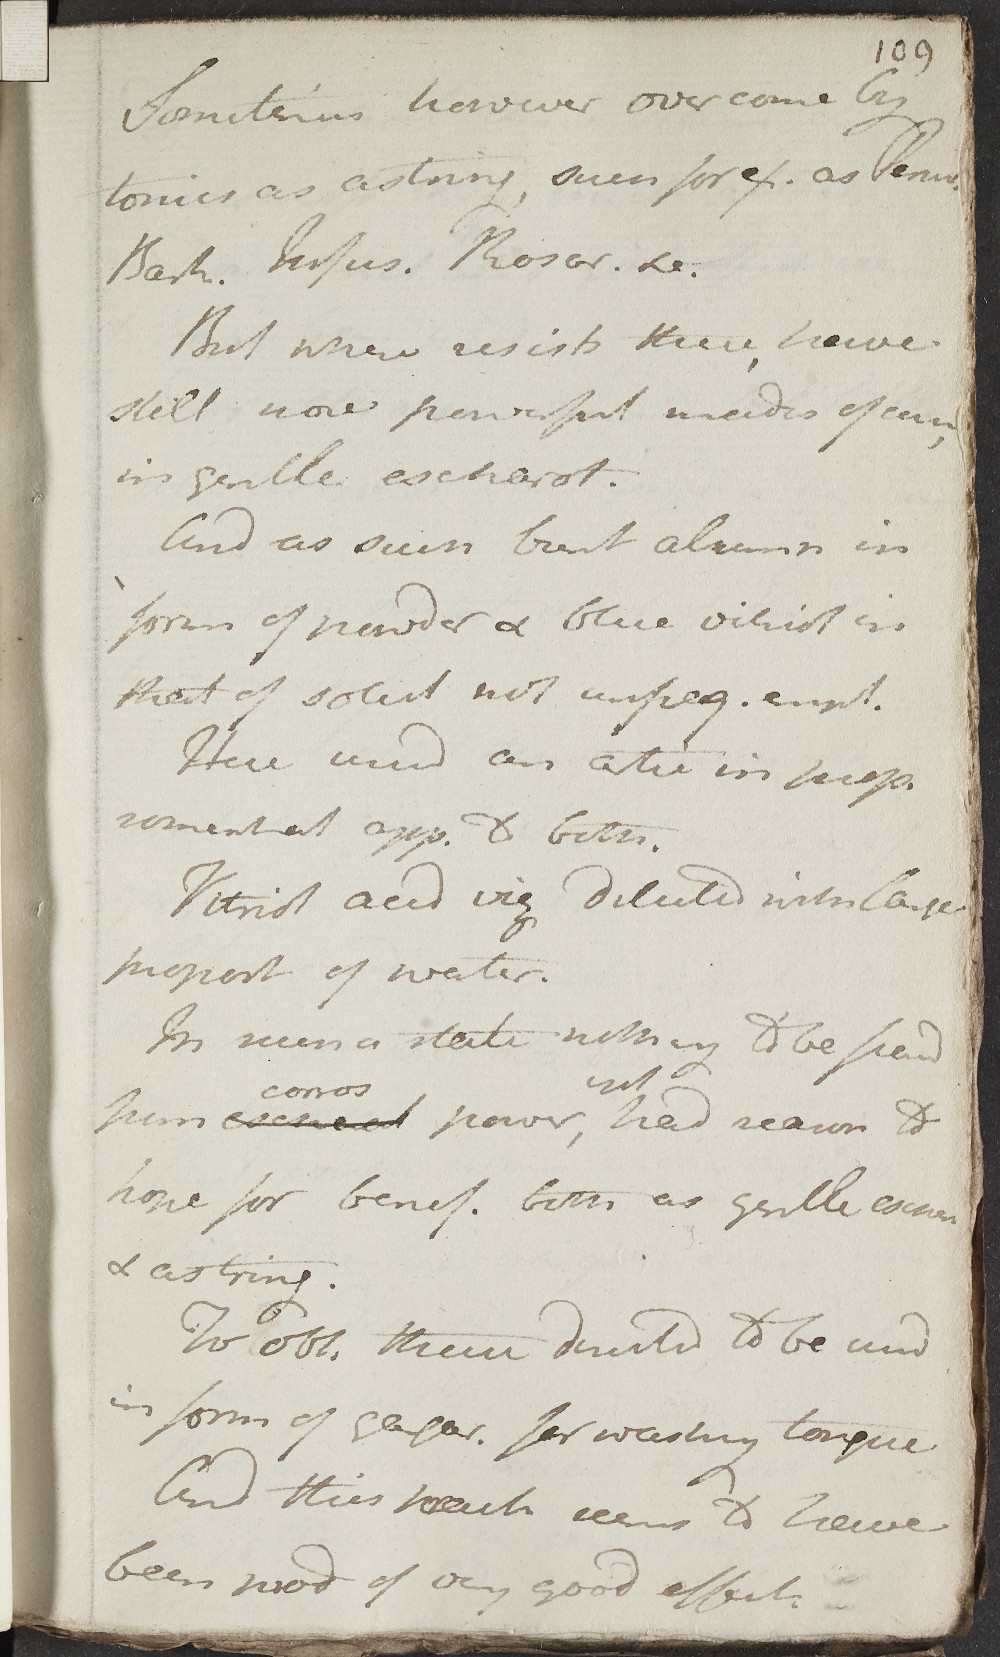 109
Sometimes however overcome by
tonics as astring, such for ex. as Peruv.
Bark. Infus. Rosar. &c.
But where resists these, have
still more powerful modes of cure,
in gentle escharot.
And as such burnt alumn in
form of powder & blue vitriol in
that of solut not unfreq. empl.
Here used an article in
somewhat app. to both.
Vitriol acid viz diluted with large
proport of water.
In such a state nothing to be fear'd
from escharot corros power, but had reason to
hope for benef. both as gentle eschar
& astring.
To obt. these directed to be used
in form of gargar. for washing tongue
And this pract seems to have
been prod of very good effects